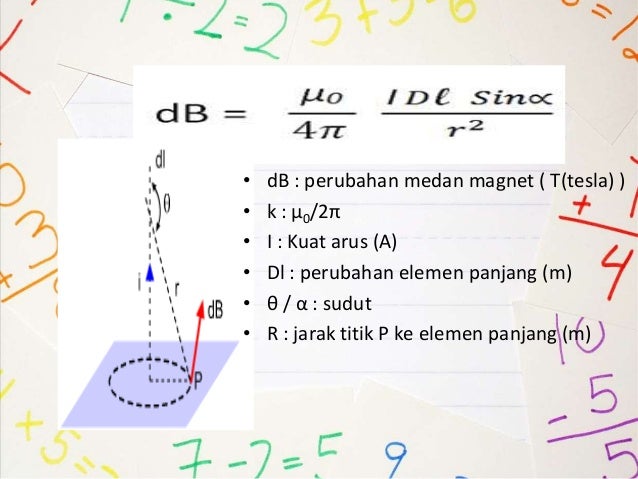 1÷2=2 3+5-6
dB = μ₀/4π I Dℓ Sin∝/r²
dl
θ
i
r
dB
P
• dB : perubahan medan magnet ( T(tesla) )
• k : μ₀/2π
• I : Kuat arus (A)
• Dl : perubahan elemen panjang (m)
• θ / α : sudut
• R : jarak titik P ke elemen panjang (m)
+ 1
4
10
- 5
5
+5=
7-2=5
9